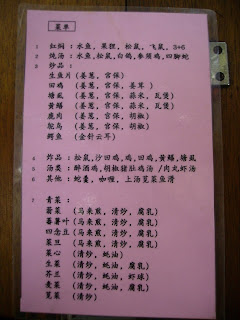 菜单
1 红焖：水鱼，果狸，松鼠，飞鼠，3+6
2 炖汤：水鱼，松鼠，白鸽，参须鸡，四脚蛇
3 炒品：
生鱼片（姜葱，宫保）
田鸡（姜葱，宫保，姜茸）
塘虱（姜葱，宫保，蒜米，瓦煲）
黄鳝（姜葱，宫保，蒜米，瓦煲）
鹿肉（姜葱，宫保，胡椒）
鸵鸟（姜葱，宫保，胡椒）
鳄鱼（金针云耳）
4 炸品：松鼠，沙田鸡，鸡，田鸡，黄鳝，塘虱
5 汤类：醉酒鸡，胡椒猪肚鸡汤/肉丸虾汤
6 其他：蛇羹，咖喱，上汤苋菜鱼滑
7 青菜：
蕹菜（马来煎，清炒，腐乳）
番薯叶（马来煎，清炒，腐乳）
四念豆（马来煎，清炒，腐乳）
菜豆（马来煎，清炒，腐乳）
菜心（清炒，蚝油）
生菜（清炒，蚝油，腐乳）
芥兰（清炒，蚝油，虾球）
麦菜（清炒，蚝油，腐乳）
苋菜（清炒）